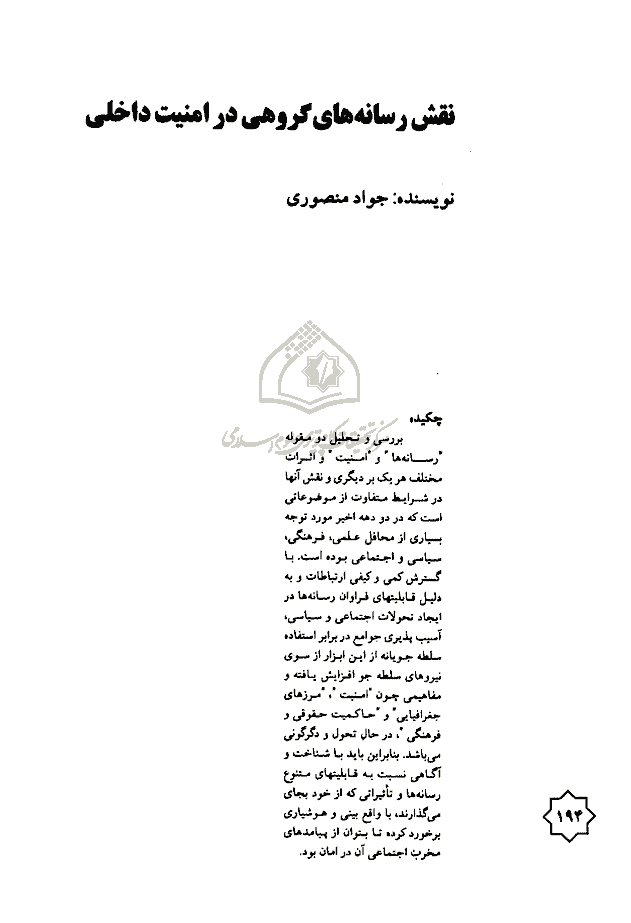 نقش رسانه‌های گروهی در امنیت داخلی
نویسنده: جواد منصوری
چکیده
بررسی و تحلیل دو مقوله
"رسانه‌ها" و "امنیت" و اثرات
مختلف هر یک بر دیگری و نقش آنها
در شرایط متفاوت از موضوعاتی
است که در دو دهه اخیر مورد توجه
بسیاری از محافل علمی، فرهنگی،
سیاسی و اجتماعی بوده است. با
گسترش کمی و کیفی ارتباطات و به
دلیل قابلیتهای فراوان رسانه‌ها در
ایجاد تحولات اجتماعی و سیاسی،
آسیب پذیری جوامع در برابر استفاده
سلطه جویانه از این ابزار از سوی
نیروهای سلطه جو افزایش یافته و
مفاهیمی چون "امنیت"، "مرزهای
جغرافیایی" و "حاکمیت حقوقی و
فرهنگی"، در حال تحول و دگرگونی
می‌باشد. بنابراین باید با شناخت و
آگاهی نسبت به قابلیتهای متنوع
رسانه‌ها و تأثیراتی که از خود بجای
می‌گذارند، با واقع بینی و هوشیاری
برخورد کرده تا بتوان از پیامدهای
مخرب اجتماعی آن در امان بود.
۱۹۴